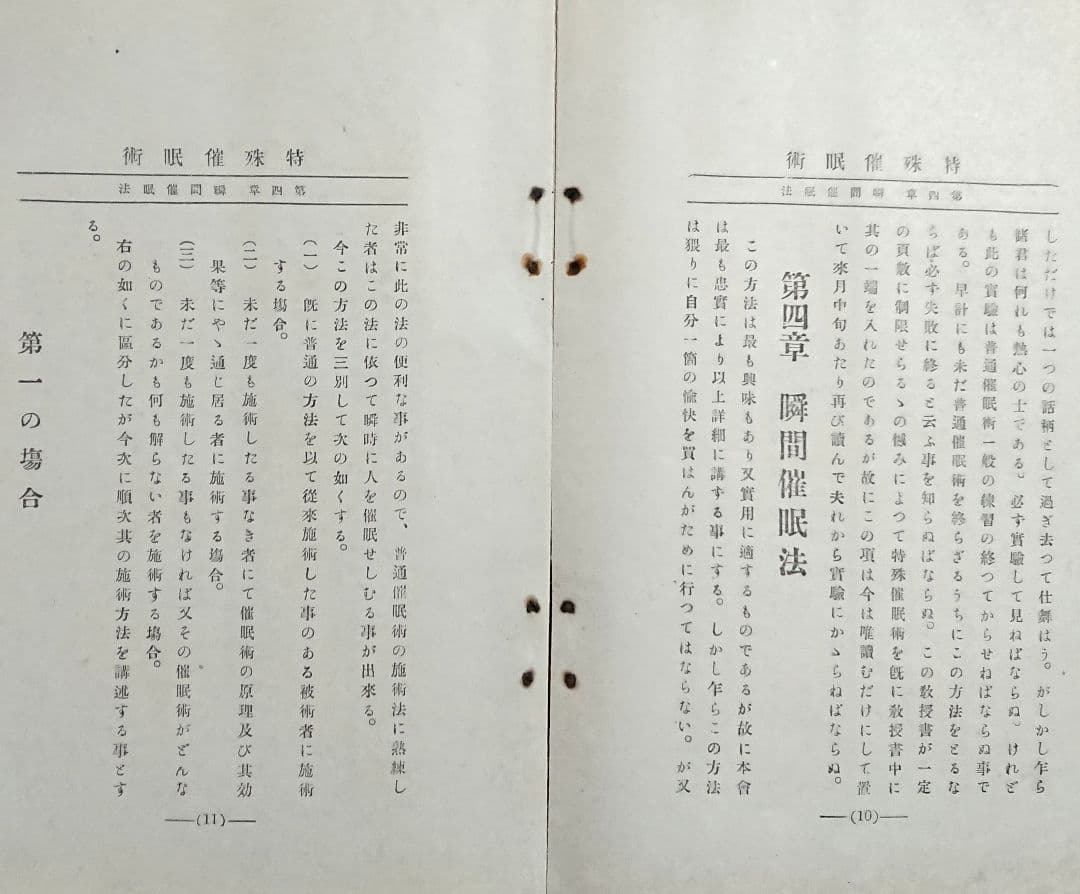 特殊催眠術
第四章　瞬間催眠法
しただけでは一つの話柄として過ぎ去つて仕舞はう。がしかし乍ら
諸君は何れも熱心の士である。必ず實驗して見ねばならぬ。けれど
も此の實驗は普通催眠術一般の練習の終つてからせねばならぬ事で
ある。早計にも未だ普通催眠術を終らざるうちにこの方法をとるな
らば必ず失敗に終ると云ふ事を知らぬばならぬ。この敎授書が一定
の頁數に制限せらるゝの憾みによつて特殊催眠術を旣に敎授書中に
其の一端を入れたのであるが故にこの項は今は唯讀むだけにして置
いて來月中旬あたり再び讀んで夫れから實驗にかゝらねばならぬ。
第四章　瞬間催眠法
この方法は最も興味もあり又實用に適するものであるが故に本會
は最も忠實により以上詳細に講する事にする。しかし乍らこの方法
は猥りに自分一箇の愉快を買はんがために行つてはならない。が又
(10)
特殊催眠術
第四章　瞬間催眠法
非常に此の法の便利な事があるので、普通催眠術の施術法に熟練し
た者はこの法に依つて瞬時に人を催眠せしむる事が出來る。
今この方法を三別して次の如くする。
(一)　旣に普通の方法を以て從來施術した事のある被術者に施術
する塲合。
(二)　未だ一度も施術したる事なき者にて催眠術の原理及び其効
果等にやゝ通じ居る者に施術する塲合。
(三)　未だ一度も施術したる事もなければ又その催眠術がどんな
ものであるかも何も解らない者を施術する塲合。
右の如くに區分したが今次に順次其の施術方法を講述する事とす
る。
第一の塲合
(11)